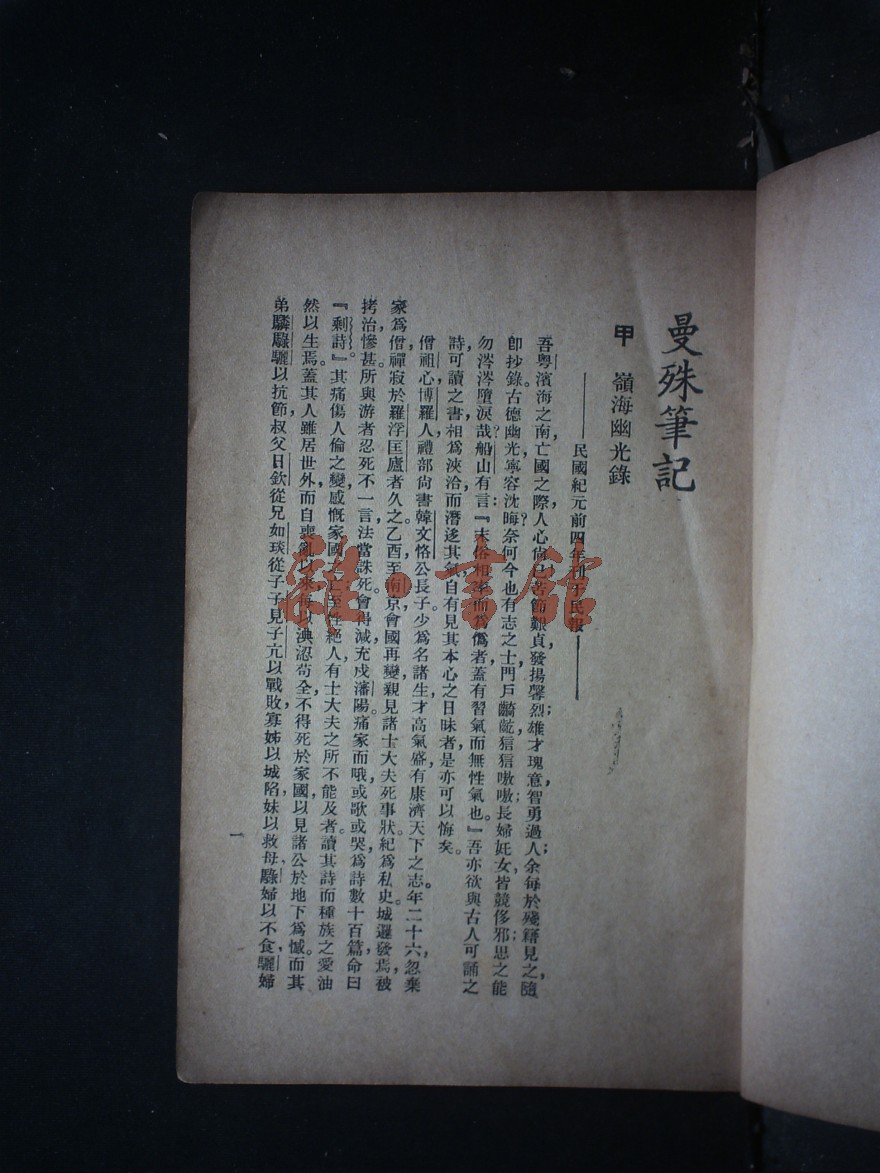 曼殊筆記
甲 嶺海幽光錄
——民國紀元前四年刊于民報——
吾粵濱海之南，亡國之際，人心尙已苦節艱貞，發揚馨烈；雄才瑰意，智勇過人；余每於殘籍見之，隨
卽抄錄。古德幽光，寧容沈晦？奈何今也有志之士，門戶齮齕，狺狺嗷嗷；長婦妊女，皆競侈邪；思之能
勿涔涔墮淚哉？船山有言：『末俗相率而爲僞者，蓋有習氣而無性氣也。』吾亦欲與古人可誦之
詩，可讀之書，相爲浹洽而潛迻其氣，自有見其本心之日昧者，是亦可以悔矣。
僧祖心，博羅人，禮部尙書韓文恪公長子。少爲名諸生，才高氣盛，有康濟天下之志。年二十六，忽棄
家爲僧，禪寂於羅浮匡廬者久之。乙酉至南京，會國再變，親見諸士大夫死事狀，紀爲私史。城邏發焉，被
拷治慘甚。所與游者忍死不一言，法當誅死，會得減充戍瀋陽。痛家而哦，或歌或哭，爲詩數十百篇，命曰
『剩詩』。其痛傷人倫之變，感慨家國之亡，至性絕人，有士大夫之所不能及者。讀其詩而種族之愛油
然以生焉。蓋其人雖居世外，而自喪亂以來，每以淟涊苟全，不得死於家國，以見諸公於地下爲憾。而其
弟驎，騄，驪，以抗節；叔父日欽，從兄如琰，從子子見，子亢，以戰敗；寡姊以城陷，妹以救母，騄婦以不食，驪婦
一
雜·書館